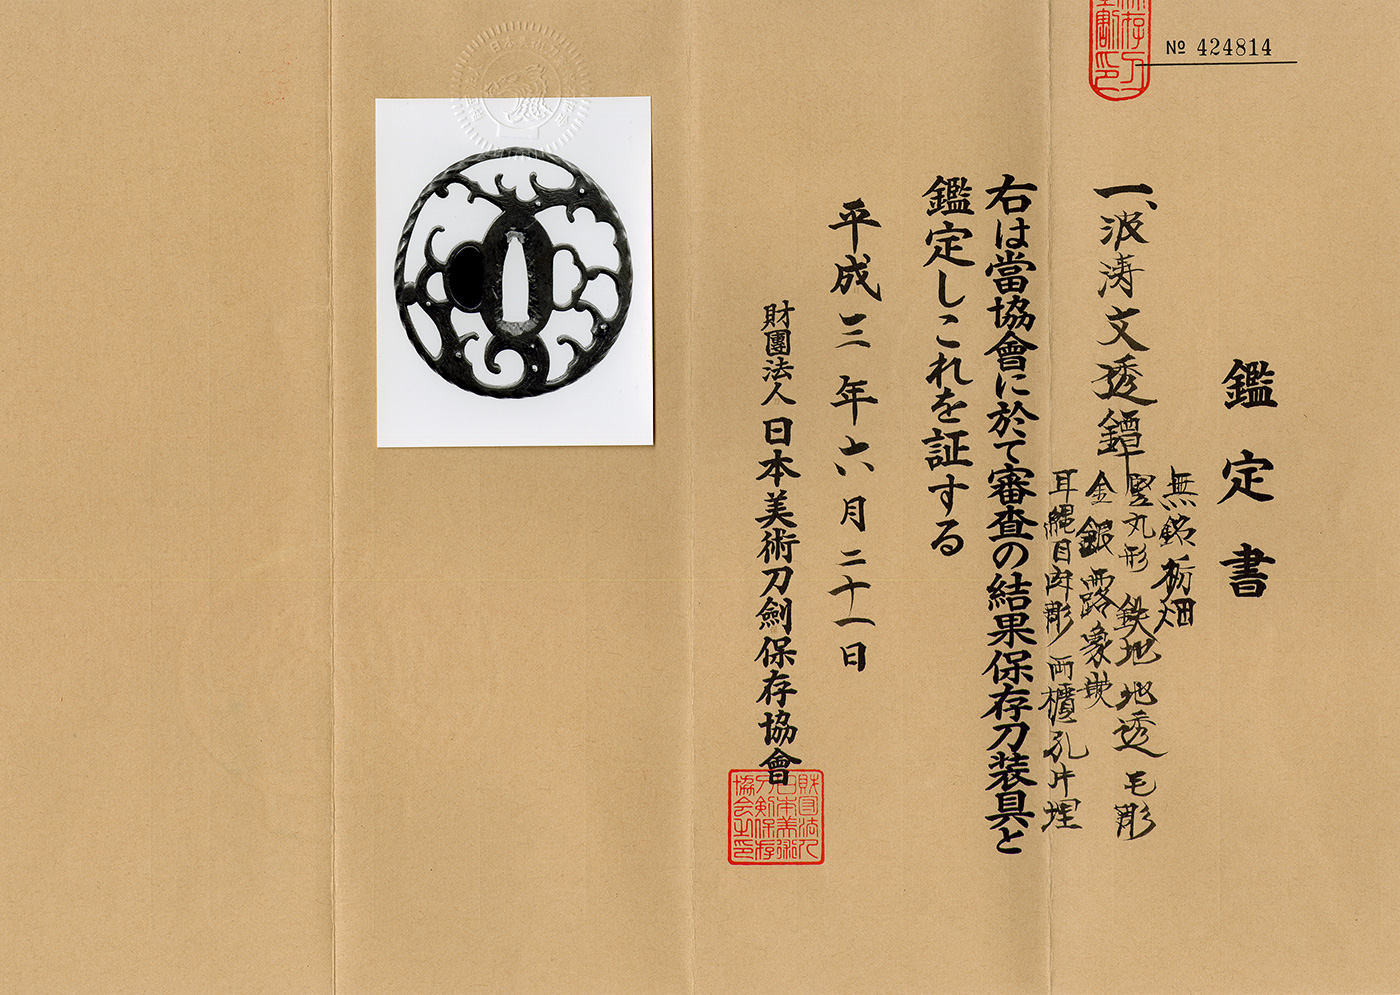 № 424814
鑑定書
一、波涛文透鐔
無銘 栃畑
竪丸形 鉄地 地透 毛彫
金銀露象嵌
耳縄目肉彫 両櫃孔片埋
右は當協會に於て審査の結果保存刀装具と
鑑定しこれを証する
平成三年六月二十一日
財團法人 日本美術刀劍保存協會
財団法人
日本美術
刀剣保存
協会之印